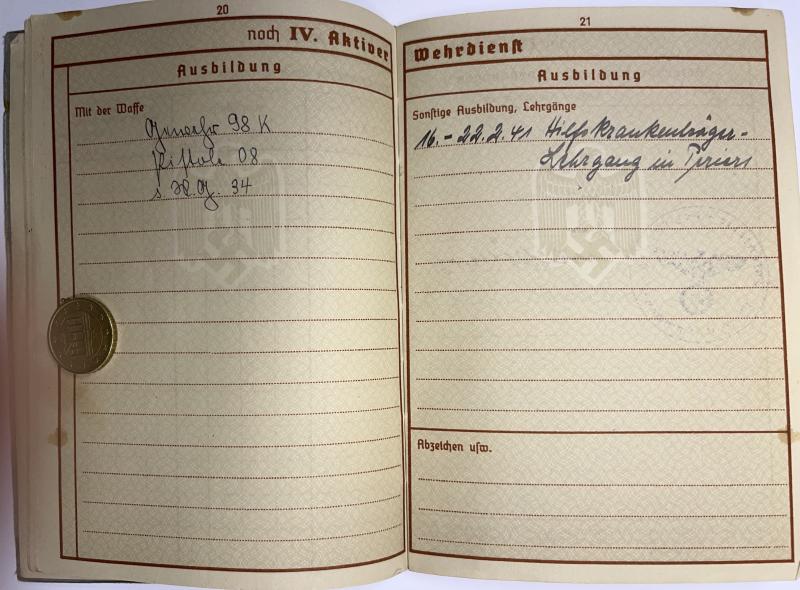 20
noch IV. Aktiver
Ausbildung
Mit der Waffe
Gewehr 98 K
Pistole 08
s. M.G. 34
21
Wehrdienst
Ausbildung
Sonstige Ausbildung, Lehrgänge
16. - 22.2.41 Hilfskrankenträger-
Lehrgang in
Abzeichen usw.